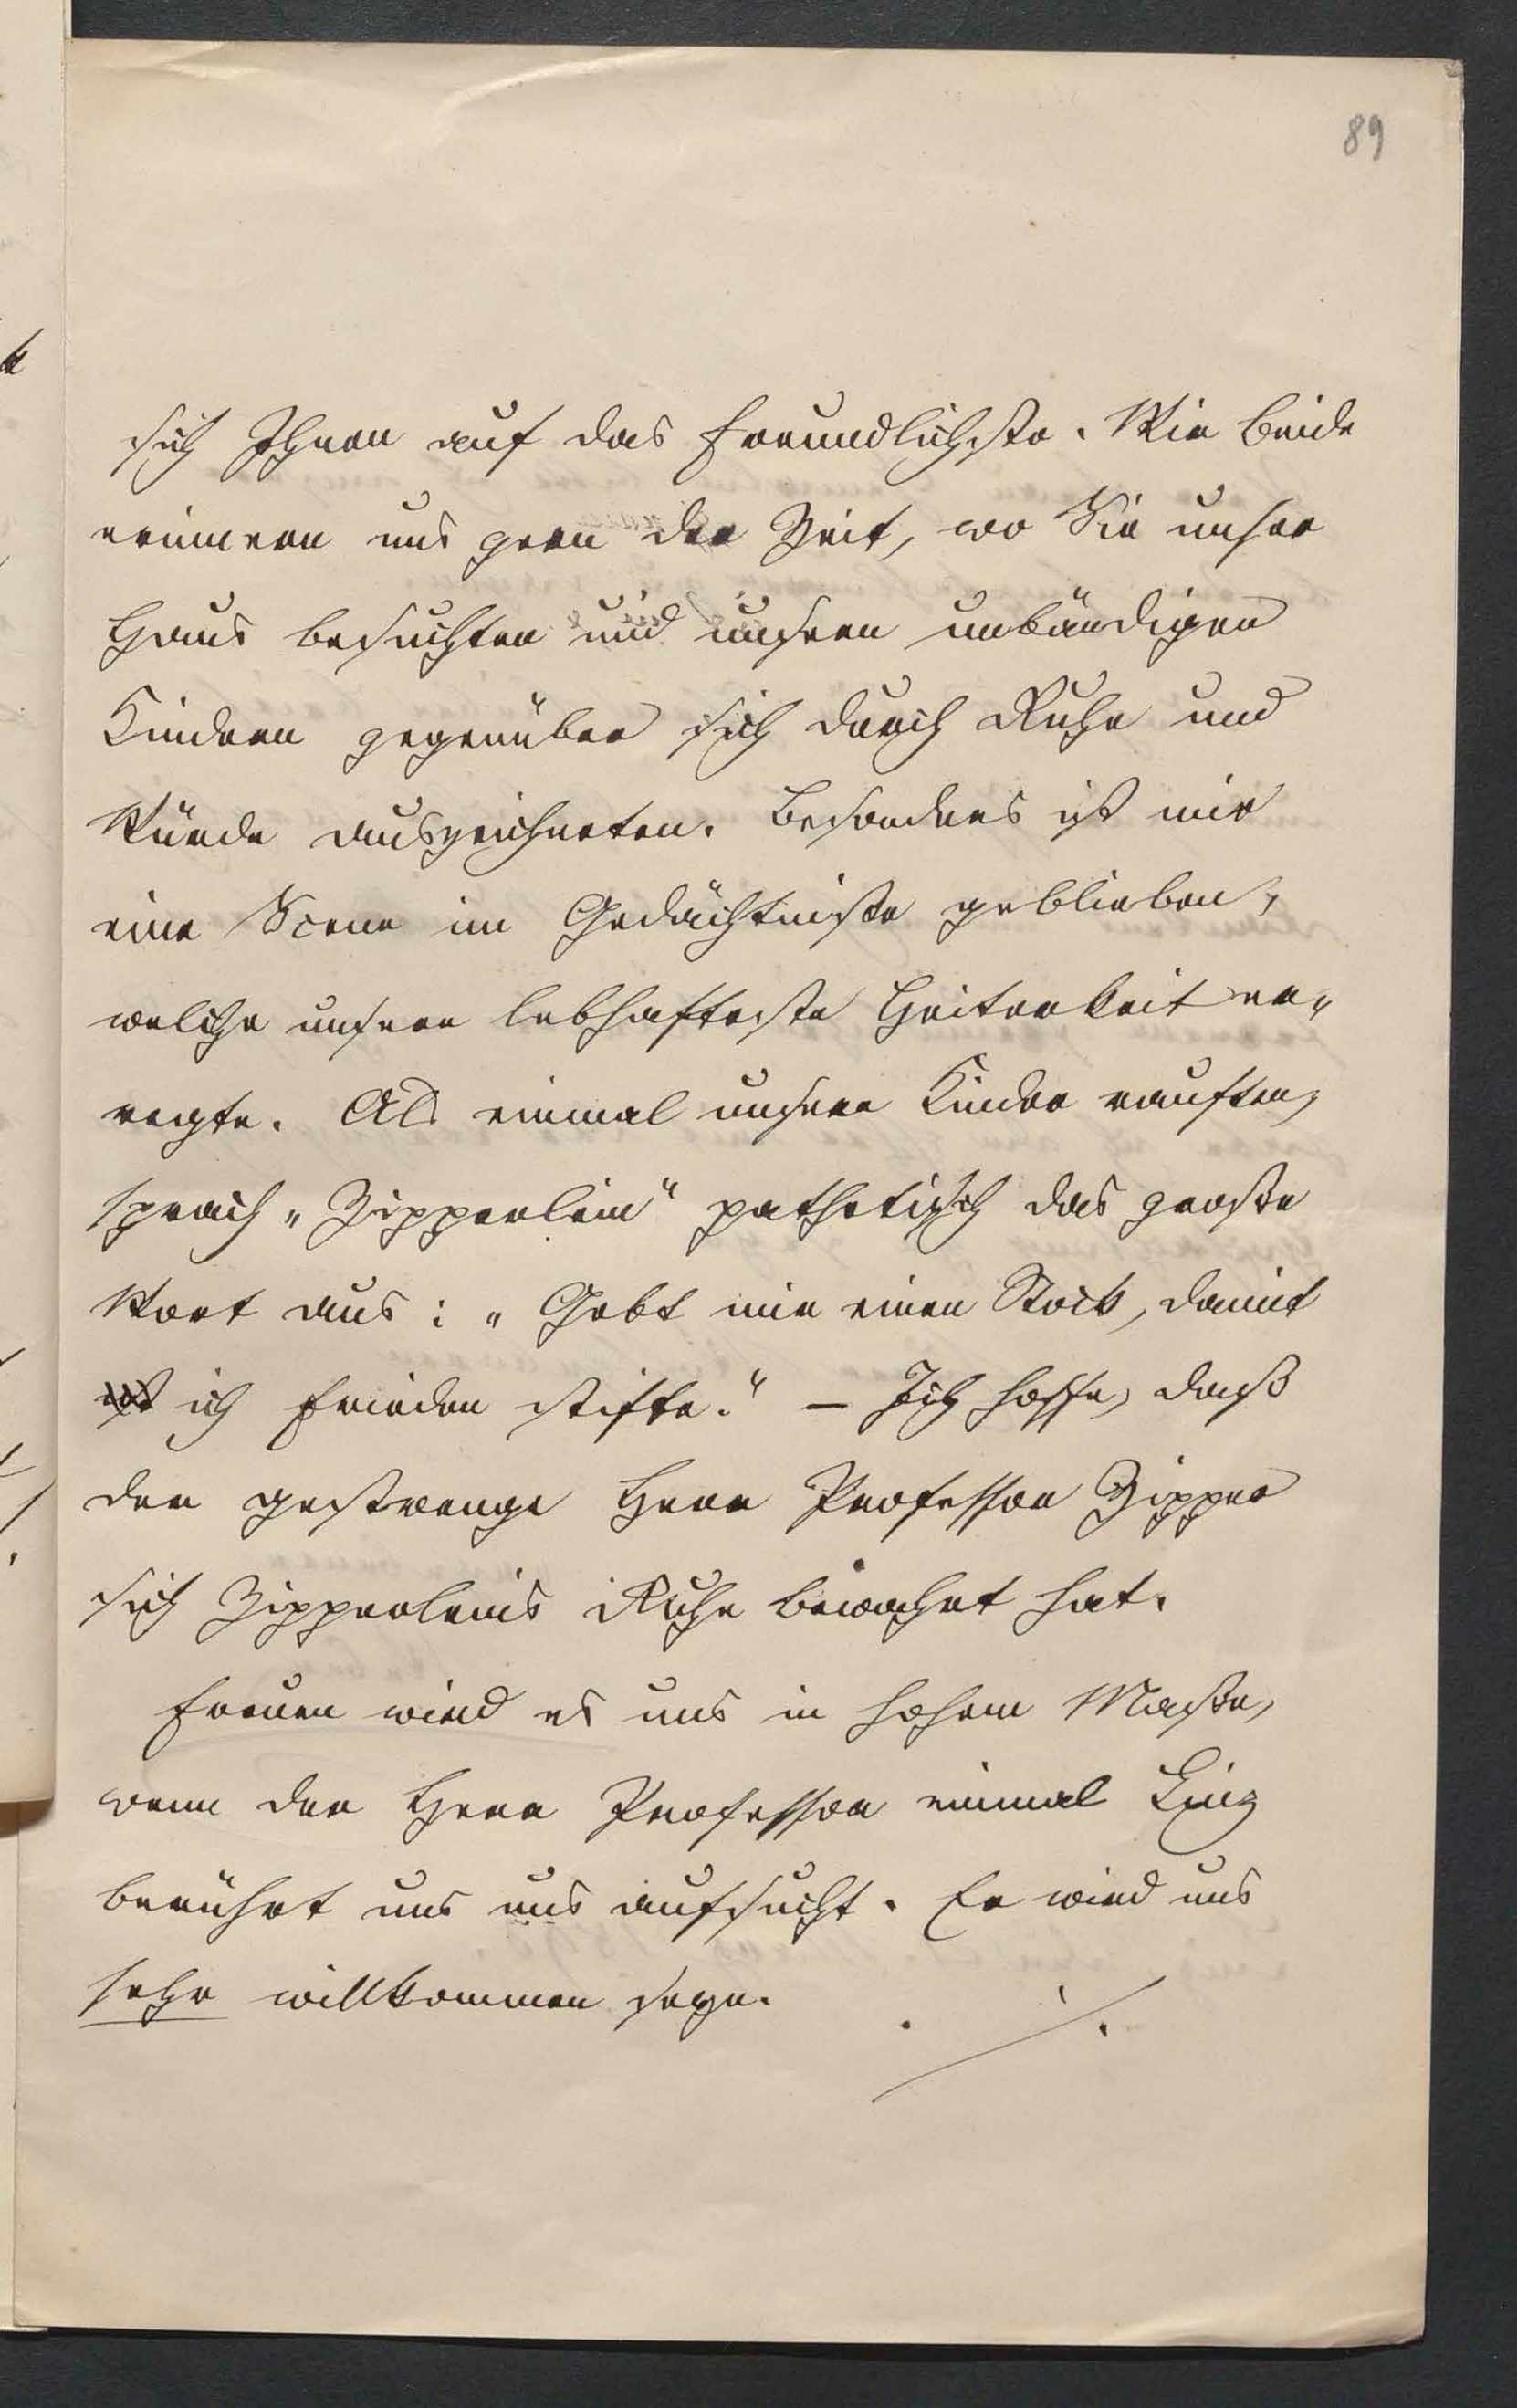 89
sich Ihnen auf das freundlichste. Wir beide
erinnern uns gern der Zeit, wo Sie unser
Haus besuchten und unseren unbändigen
Kindern gegenüber sich durch Ruhe und
Würde auszeichneten. Besonders ist mir
eine Scene im Gedächtnisse geblieben,
welche unsere lebhafteste Heiterkeit er„
regte. Als einmal unsere Kinder rauften,
sprach „Zipperlein“ pathetisch das große
Wort aus: „Gebt mir einen Stock, damit
ich Frieden stifte.“ – Ich hoffe, daß
der gestrenge Herr Professor Zipper
sich Zipperleins Ruhe bewahrt hat.
Freuen wird es uns in hohem Maße,
wenn der Herr Professor einmal Linz
berührt uns uns aufsucht. Er wird uns
sehr willkommen seyn.
./.